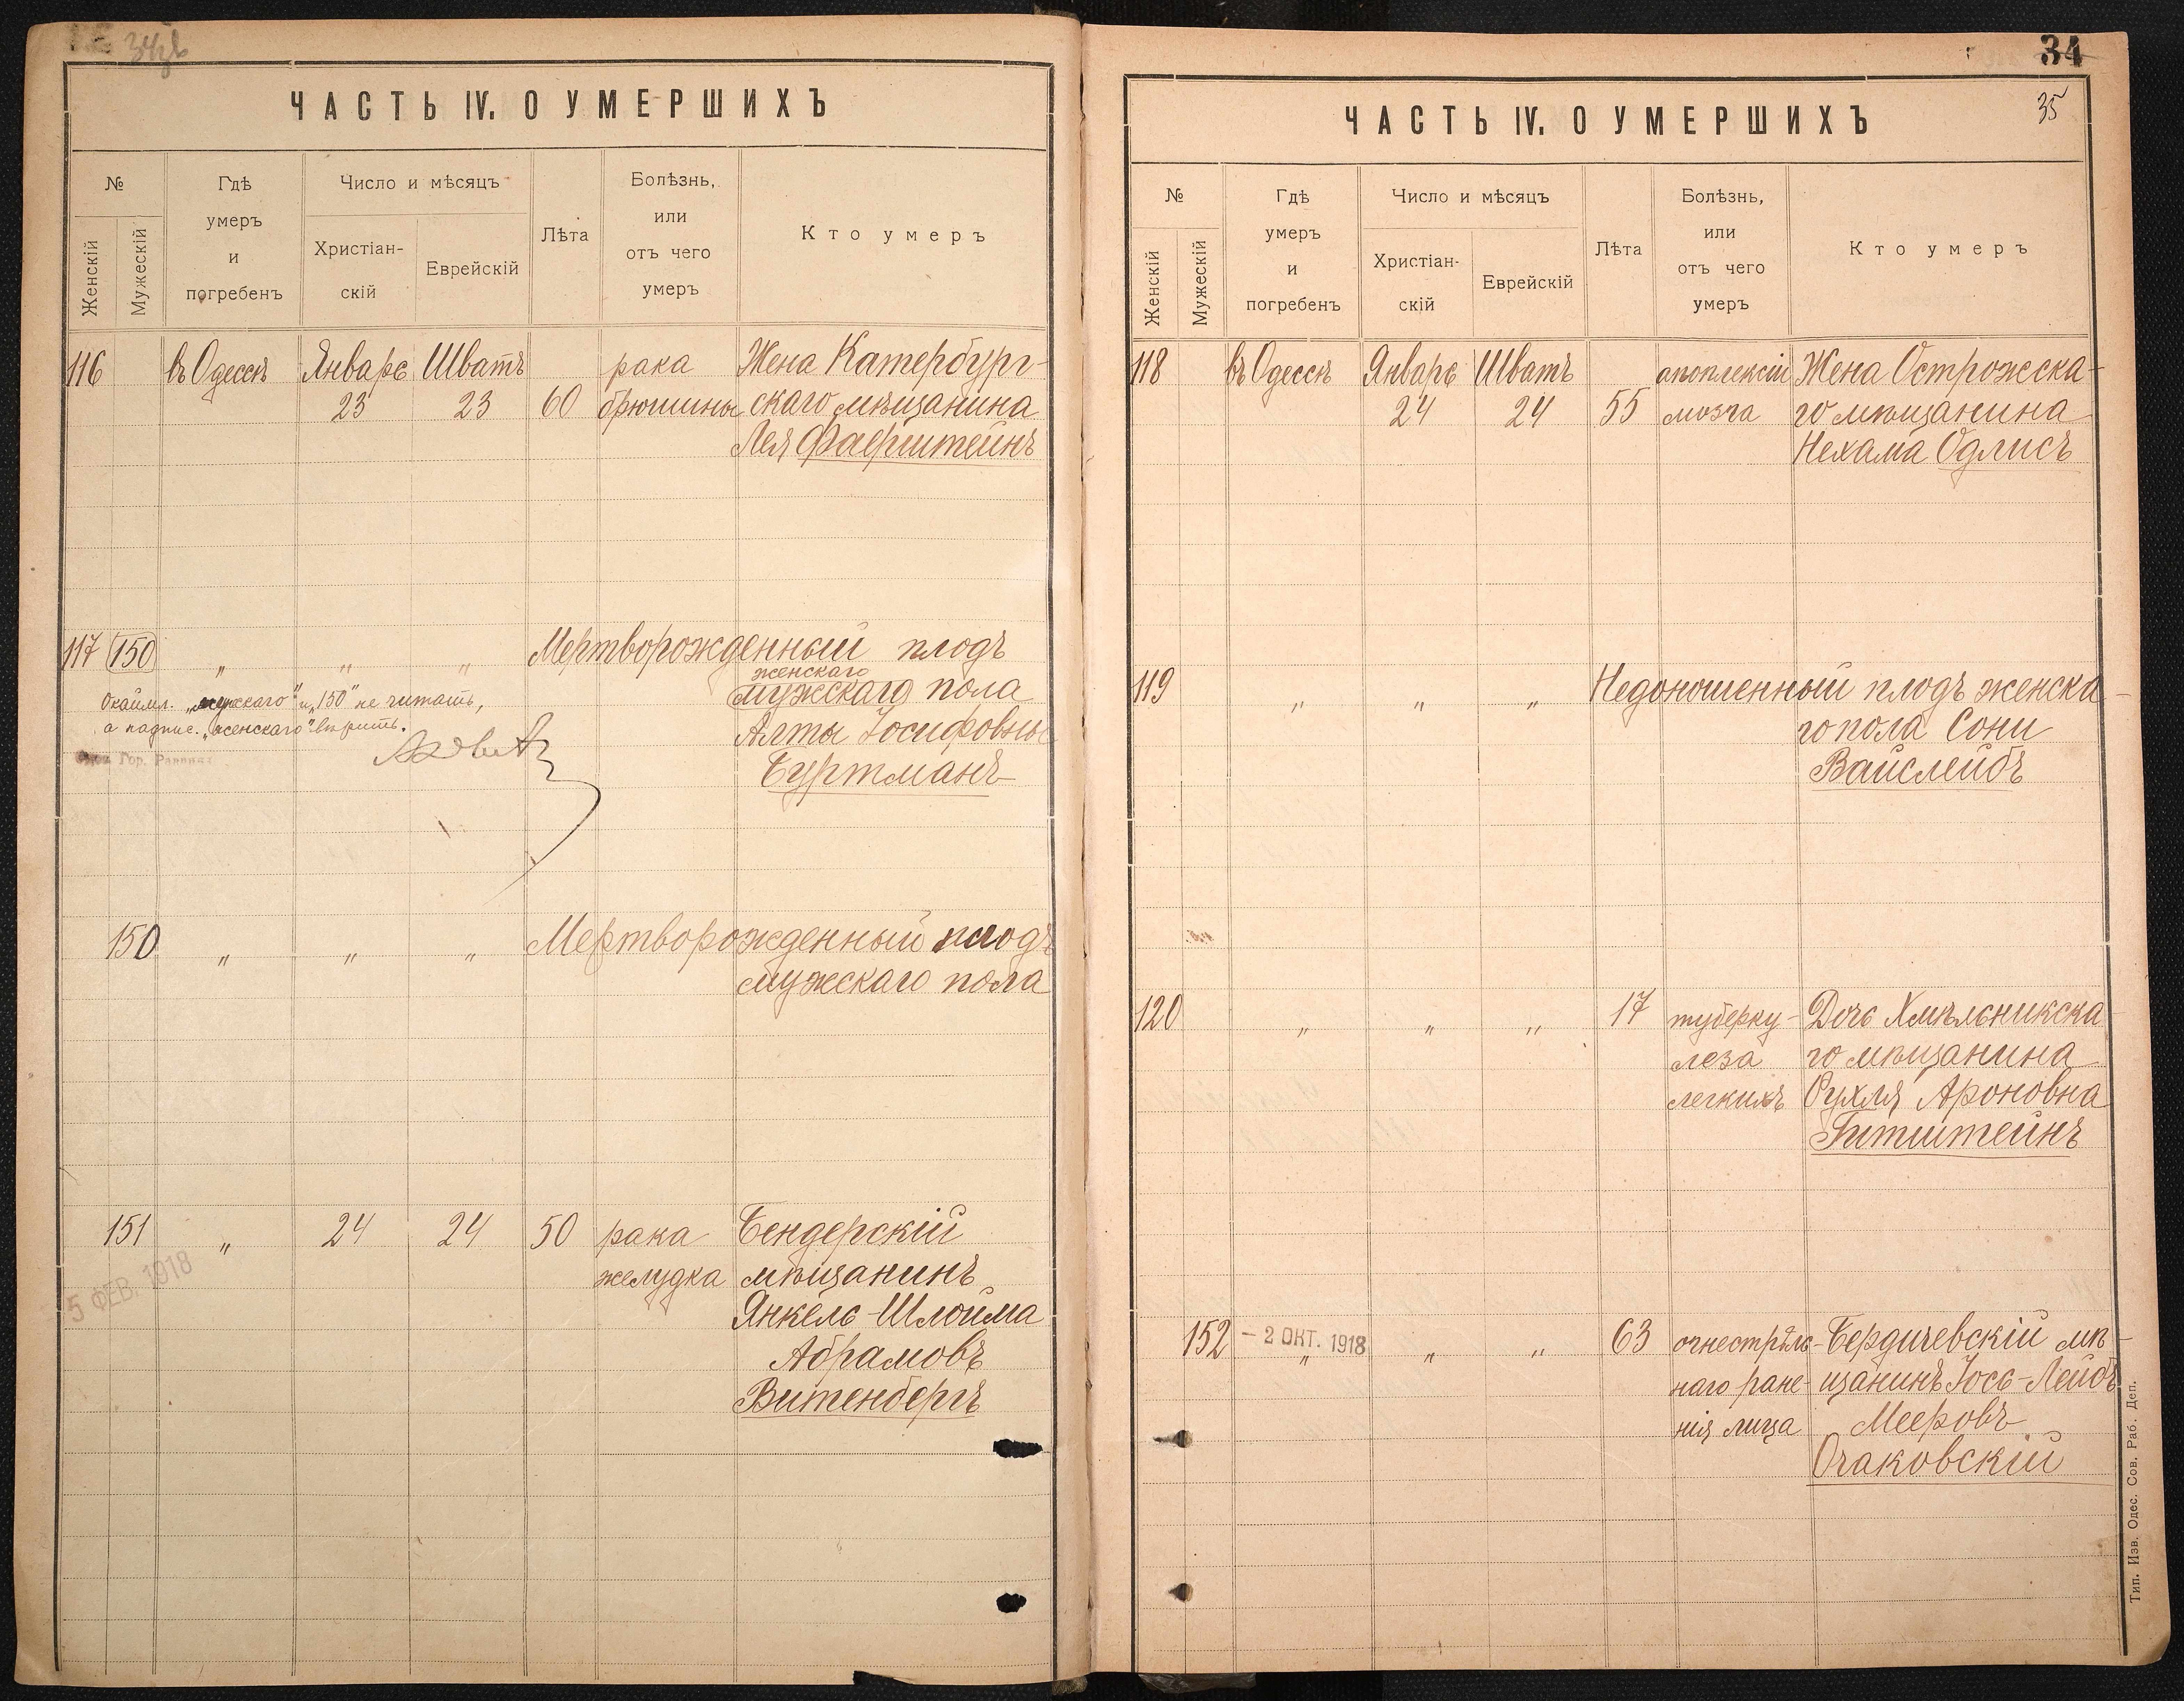 ЧАСТЬ IV. О УМЕРШИХЪ
№
Женскій
Мужескій
Гдѣ
умеръ
и
погребенъ
Число и мѣсяцъ
Христіан-
скій
Еврейскій
Лѣта
Болѣзнь,
или
отъ чего
умеръ
Кто умеръ
116 въ Одессѣ Январь Шватъ рака Жена Катербург-
23 23 60 брюшины скаго мѣщанина
Лея Фаерштейнъ
117 150 „ „ „ Мертворожденный плодъ
женскаго
мужскаго пола
Окаймл. „мужскаго" и „150" не читать,
а надпис. „женскаго" вѣрить.
Алты Іосифовны
Гор. Раввина
Буртманъ
150 „ „ „ Мертворожденный плодъ
мужескаго пола
151 „ 24 24 50 рака Бендерскій
желудка мѣщанинъ
5 ФЕВ. 1918
Янкель-Шлойма
Абрамовъ
Витенбергъ
34
35
ЧАСТЬ IV. О УМЕРШИХЪ
№
Женскій
Мужескій
Гдѣ
умеръ
и
погребенъ
Число и мѣсяцъ
Христіан-
скій
Еврейскій
Лѣта
Болѣзнь,
или
отъ чего
умеръ
Кто умеръ
118 въ Одессѣ Январь Шватъ апоплексіи Жена Острожска-
24 24 55 мозга го мѣщанина
Нехама Одлисъ
119 „ „ „ Недоношенный плодъ женска-
го пола Сони
Вайслейбъ
120 „ „ „ 17 туберку- Дочь Хмѣльникска
леза го мѣщанина
легкихъ Рухля Ароновна
Гитштейнъ
152 – 2 ОКТ. 1918 „ „ „ 63 огнестрѣль- Бердичевскій мѣ-
наго ране- щанинъ Іось-Лейбъ
нія лица Мееровъ
Очаковскій
Тип. Изв. Одес. Сов. Раб. Деп.